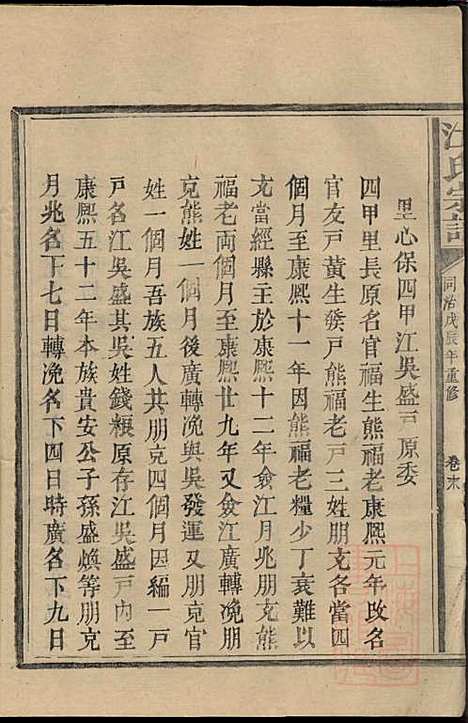 江氏宗譜
同治戊辰年重修
卷末
里心保四甲江吳盛戸原委
四甲里長原名官福生熊福老康熙元年改名
官友戸黃生發戸熊福老戸三姓朋充各當四
個月至康熙十一年因熊福老糧少丁衰難以
充當經縣主於康熙十二年僉江月兆朋充熊
福老兩個月至康熙廿九年又僉江廣轉浼朋
克熊姓一個月後廣轉浼與吳發運又朋克官
姓一個月吾族五人共朋克四個月因編一戸
戸名江吳盛其吳姓錢糧原存江吳盛戸內至
康熙五十二年本族貴安公子孫盛煥等朋克
月兆名下七日轉浼名下四日時廣名下九日